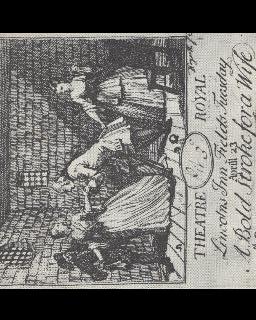 THEATRE ROYAL
Lincolns Inn Fields Tuesday
April 23
A Bold Stroke for a Wife